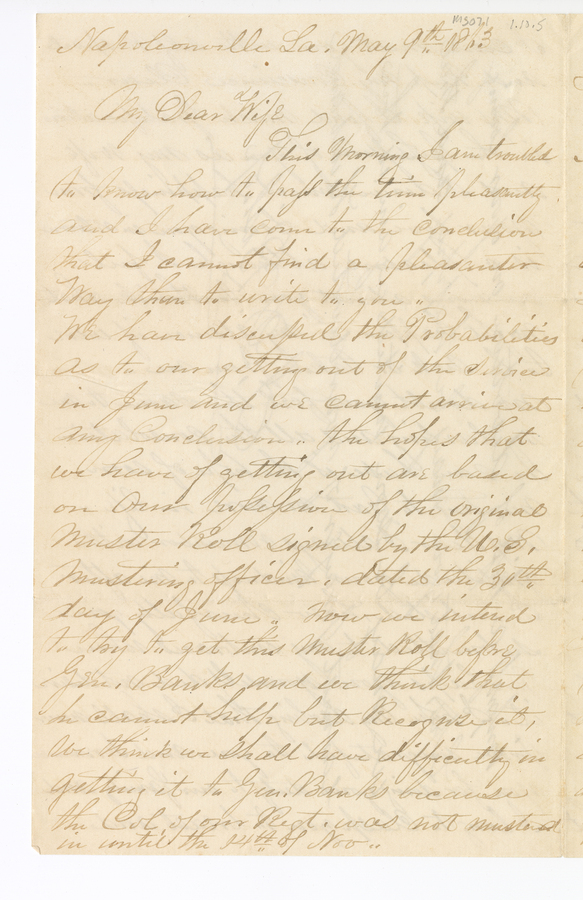 MS07.1 1.10.5
Napoleonville La. May 9th 1863
My Dear Wife
This Morning I am troubled
to know how to pass the time pleasantly.
and I have come to the conclusion
that I cannot find a pleasanter
Way than to write to you..
We have discussed the Probabilities
as to our getting out of the service
in June and we cannot arrive at
any Conclusion.. the hopes that
we have of getting out are based
on Our Possession of the original
Muster Roll signed by the U.S.
Mustering officer. dated the 30th
day of June.. now we intend
to try to get this Muster Roll before
Gen. Banks and we think that
he cannot help but Recognize it,
We think we shall have difficulty in
getting it to Gen. Banks because
the Col. of our Regt. was not mustered
in until the 14th of Nov..